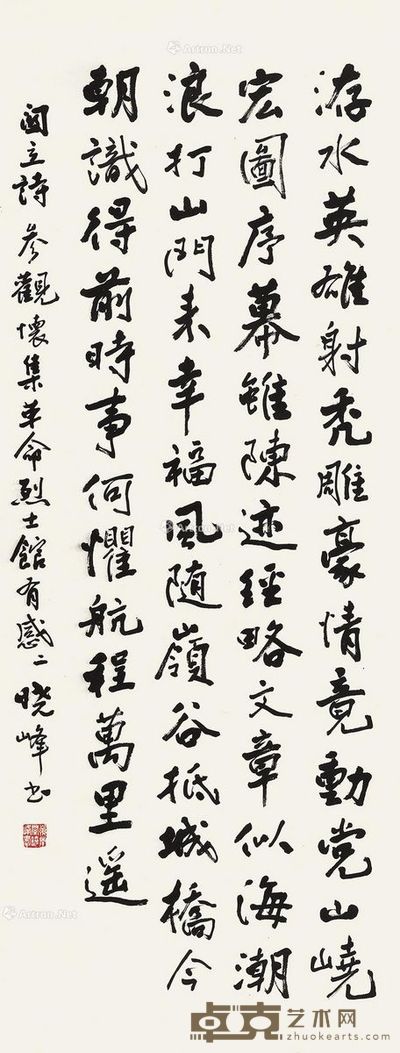 洊水英雄射秃雕豪情竟動党山嶢
宏圖序幕雖陳迹經略文章似海潮
浪打山門来幸福風随嶺谷抵城橋今
朝識得前時事何懼航程萬里遥
立詩 參觀懷集革命烈士館有感二 晓峰书
Artron.Net
卓克艺术网
zhuokearts.com